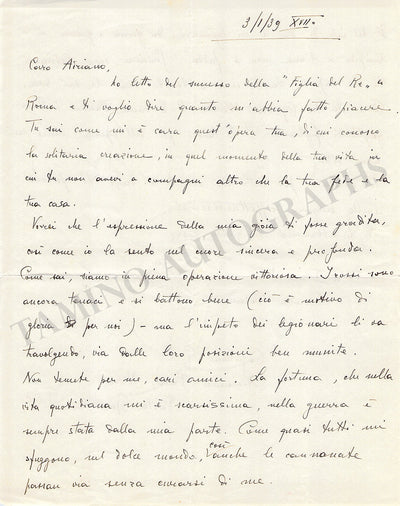 3/1/39 XVII.
Caro Adriano,
ho letto del successo della "Figlia del Re" a
Roma e ti voglio dire quanto m'abbia fatto piacere.
Tu sai come mi è cara quest'opera tua, di cui conosco
la solitaria creazione, in quel momento della tua vita in
cui tu non avevi a compagni altro che la tua fede e la
tua casa.
Vorrei che l'espressione della mia gioia ti fosse gradita,
così come io la sento nel cuore sincera e profonda.
Come sai, siamo in piena operazione vittoriosa. I rossi sono
ancora tenaci e si battono bene (ciò è motivo di
gloria per noi) - ma l'impeto dei legionari li va
travolgendo, via dalle loro posizioni ben munite.
Non temete per me, cari amici. La fortuna, che nella
vita quotidiana mi è scarsissima, nella guerra è
sempre stata dalla mia parte. Come quasi tutti mi
sfuggono, nel dolce mondo, così anche le cannonate
passan via senza curarsi di me.
TAMINO AUTOGRAPHS